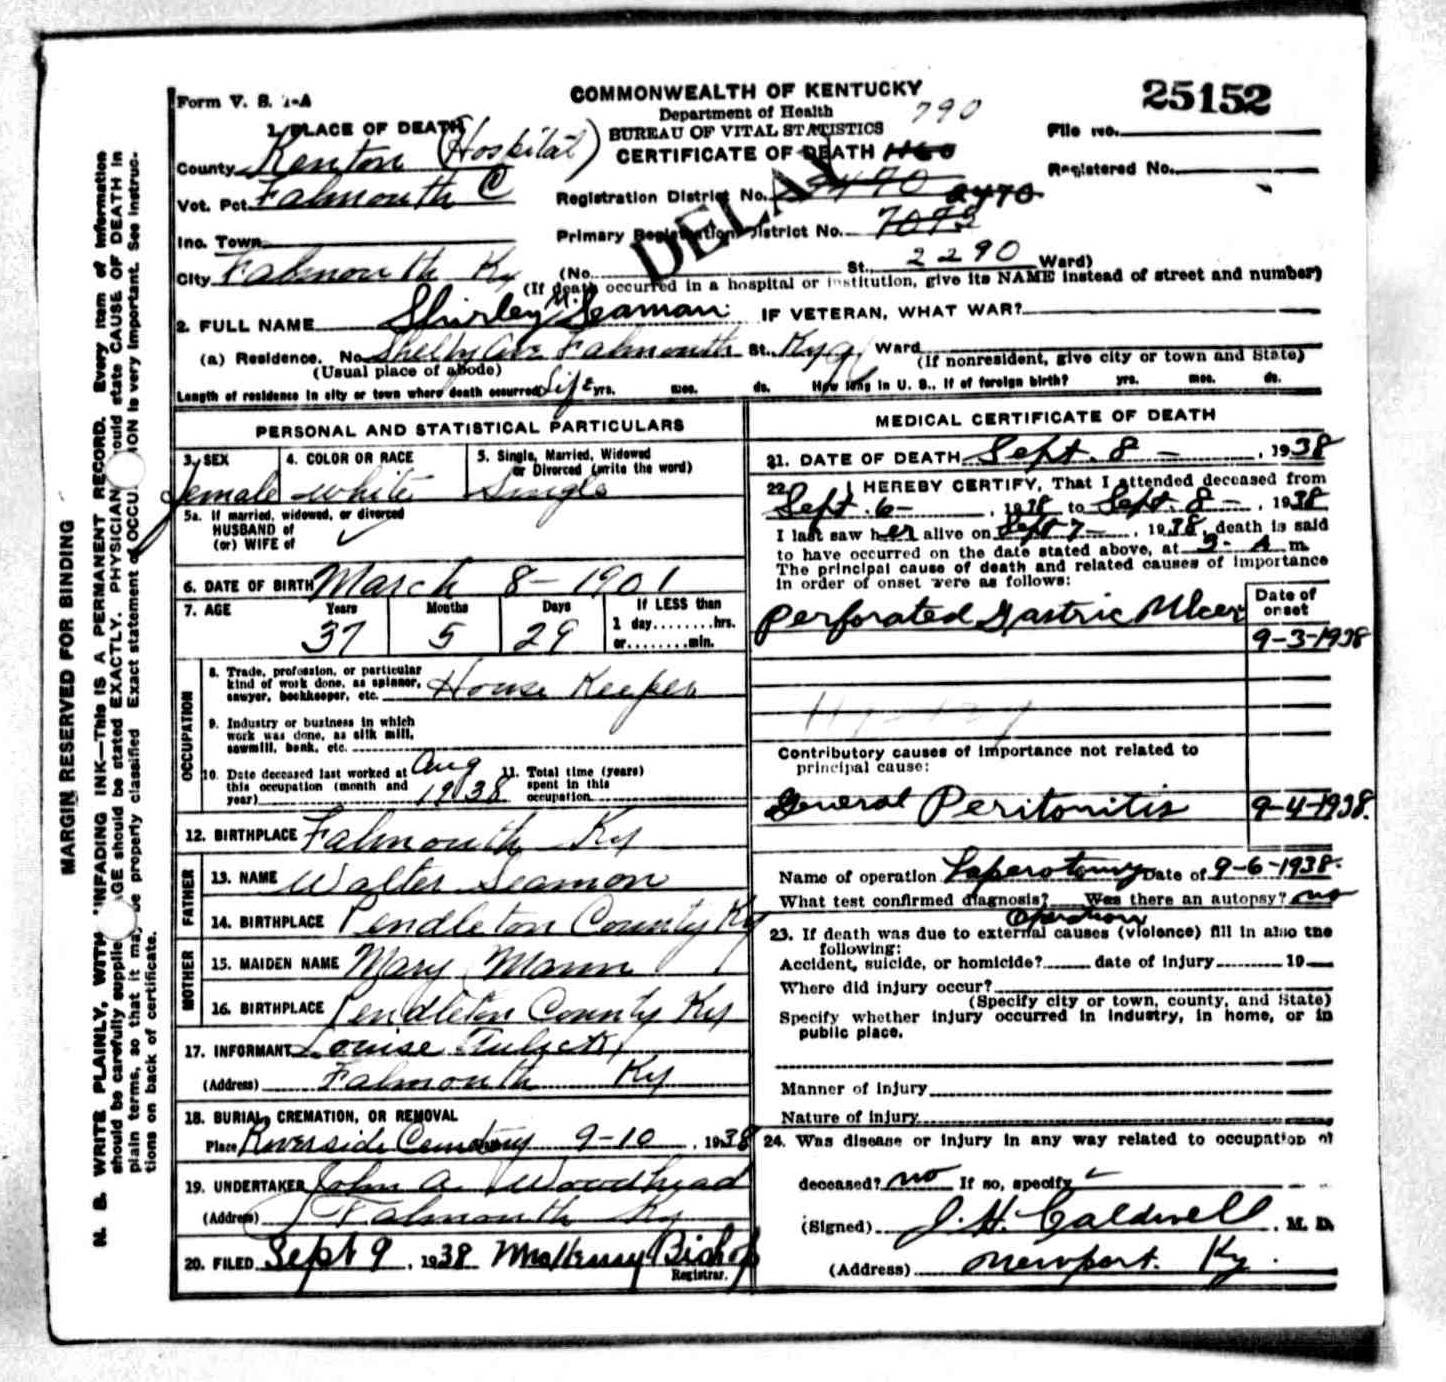 Form V. S. 1-A
COMMONWEALTH OF KENTUCKY
Department of Health
BUREAU OF VITAL STATISTICS
CERTIFICATE OF DEATH 1160
790
25152
File No.
Registered No.
DELAY
1. PLACE OF DEATH
County Kenton (Hospital)
Vot. Pct. Falmouth C
Inc. Town
City Falmouth Ky
Registration District No. 2470
Primary Registration District No. 7073
2290
(No. St., Ward)
(If death occurred in a hospital or institution, give its NAME instead of street and number)
2. FULL NAME Shirley M. Seaman IF VETERAN, WHAT WAR?
(a) Residence. No. Shelby Ave Falmouth St., Ky Ward
(Usual place of abode) (If nonresident, give city or town and State)
Length of residence in city or town where death occurred Life yrs. mos. ds. How long in U. S., if of foreign birth? yrs. mos. ds.
PERSONAL AND STATISTICAL PARTICULARS
3. SEX female
4. COLOR OR RACE white
5. Single, Married, Widowed or Divorced (write the word) Single
5a. If married, widowed, or divorced
HUSBAND of
(or) WIFE of
6. DATE OF BIRTH March 8-1901
7. AGE Years 37 Months 5 Days 29 If LESS than
1 day........hrs.
or........min.
OCCUPATION
8. Trade, profession, or particular
kind of work done, as spinner,
sawyer, bookkeeper, etc. House Keeper
9. Industry or business in which
work was done, as silk mill,
sawmill, bank, etc.
10. Date deceased last worked at
this occupation (month and
year) Aug 1938
11. Total time (years)
spent in this
occupation
12. BIRTHPLACE Falmouth Ky
FATHER
13. NAME Walter Seamon
14. BIRTHPLACE Pendleton County Ky
MOTHER
15. MAIDEN NAME Mary Mann
16. BIRTHPLACE Pendleton County Ky
17. INFORMANT Louise
(Address) Falmouth Ky
18. BURIAL, CREMATION, OR REMOVAL
Place Riverside Cemetery 9-10, 1938
19. UNDERTAKER John A. Woodhead
(Address) Falmouth Ky
20. FILED Sept 9, 1938 Bishop
Registrar.
MEDICAL CERTIFICATE OF DEATH
21. DATE OF DEATH Sept. 8 -, 1938
22. I HEREBY CERTIFY, That I attended deceased from
Sept. 6-, 1938 to Sept. 8-, 1938
I last saw her alive on Sept 7-, 1938, death is said
to have occurred on the date stated above, at 3- A m.
The principal cause of death and related causes of importance
in order of onset were as follows:
Date of
onset
Perforated Gastric Ulcer
9-3-1938
Contributory causes of importance not related to
principal cause:
General Peritonitis 9-4-1938.
Name of operation Laperotomy Date of 9-6-1938.
What test confirmed diagnosis? Operation Was there an autopsy? no
23. If death was due to external causes (violence) fill in also the
following:
Accident, suicide, or homicide? date of injury 19
Where did injury occur?
(Specify city or town, county, and State)
Specify whether injury occurred in industry, in home, or in
public place.
Manner of injury
Nature of injury
24. Was disease or injury in any way related to occupation of
deceased? no If so, specify
(Signed) J. H. Caldwell, M. D.
(Address) Newport. Ky.
MARGIN RESERVED FOR BINDING
N. B. WRITE PLAINLY, WITH UNFADING INK—THIS IS A PERMANENT RECORD. Every item of information
should be carefully supplied. AGE should be stated EXACTLY. PHYSICIAN should state CAUSE OF DEATH in
plain terms, so that it may be properly classified. Exact statement of OCCUPATION is very important. See instruc-
tions on back of certificate.